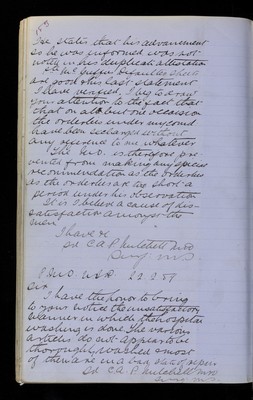 He states that his advancement
as he was informed was not
noted in his duplicate attestation
are good & this last statement
I have verified, I beg to draw
your attention to the fact that
that on all but one occasion
the orderlies under me
have been exchanged without
any reference to me whatever
The M.O. is therefore pre
vented from making any special
recommendation as to the orderlies
as the orderlies are too short a
period under his observation
It is I believe a cause of dis-
satisfaction amongst the
men
I have &c
Sd C.A.P. Mitchell
Surg
22.2.58
Sir
I have the honor to bring
to your notice the unsatisfactory
manner in which the hospital
washing is done. The various
articles do not appear to be
thoroughly washed & most
of them are in a bad state of repair
Sd C.A.P. Mitchell